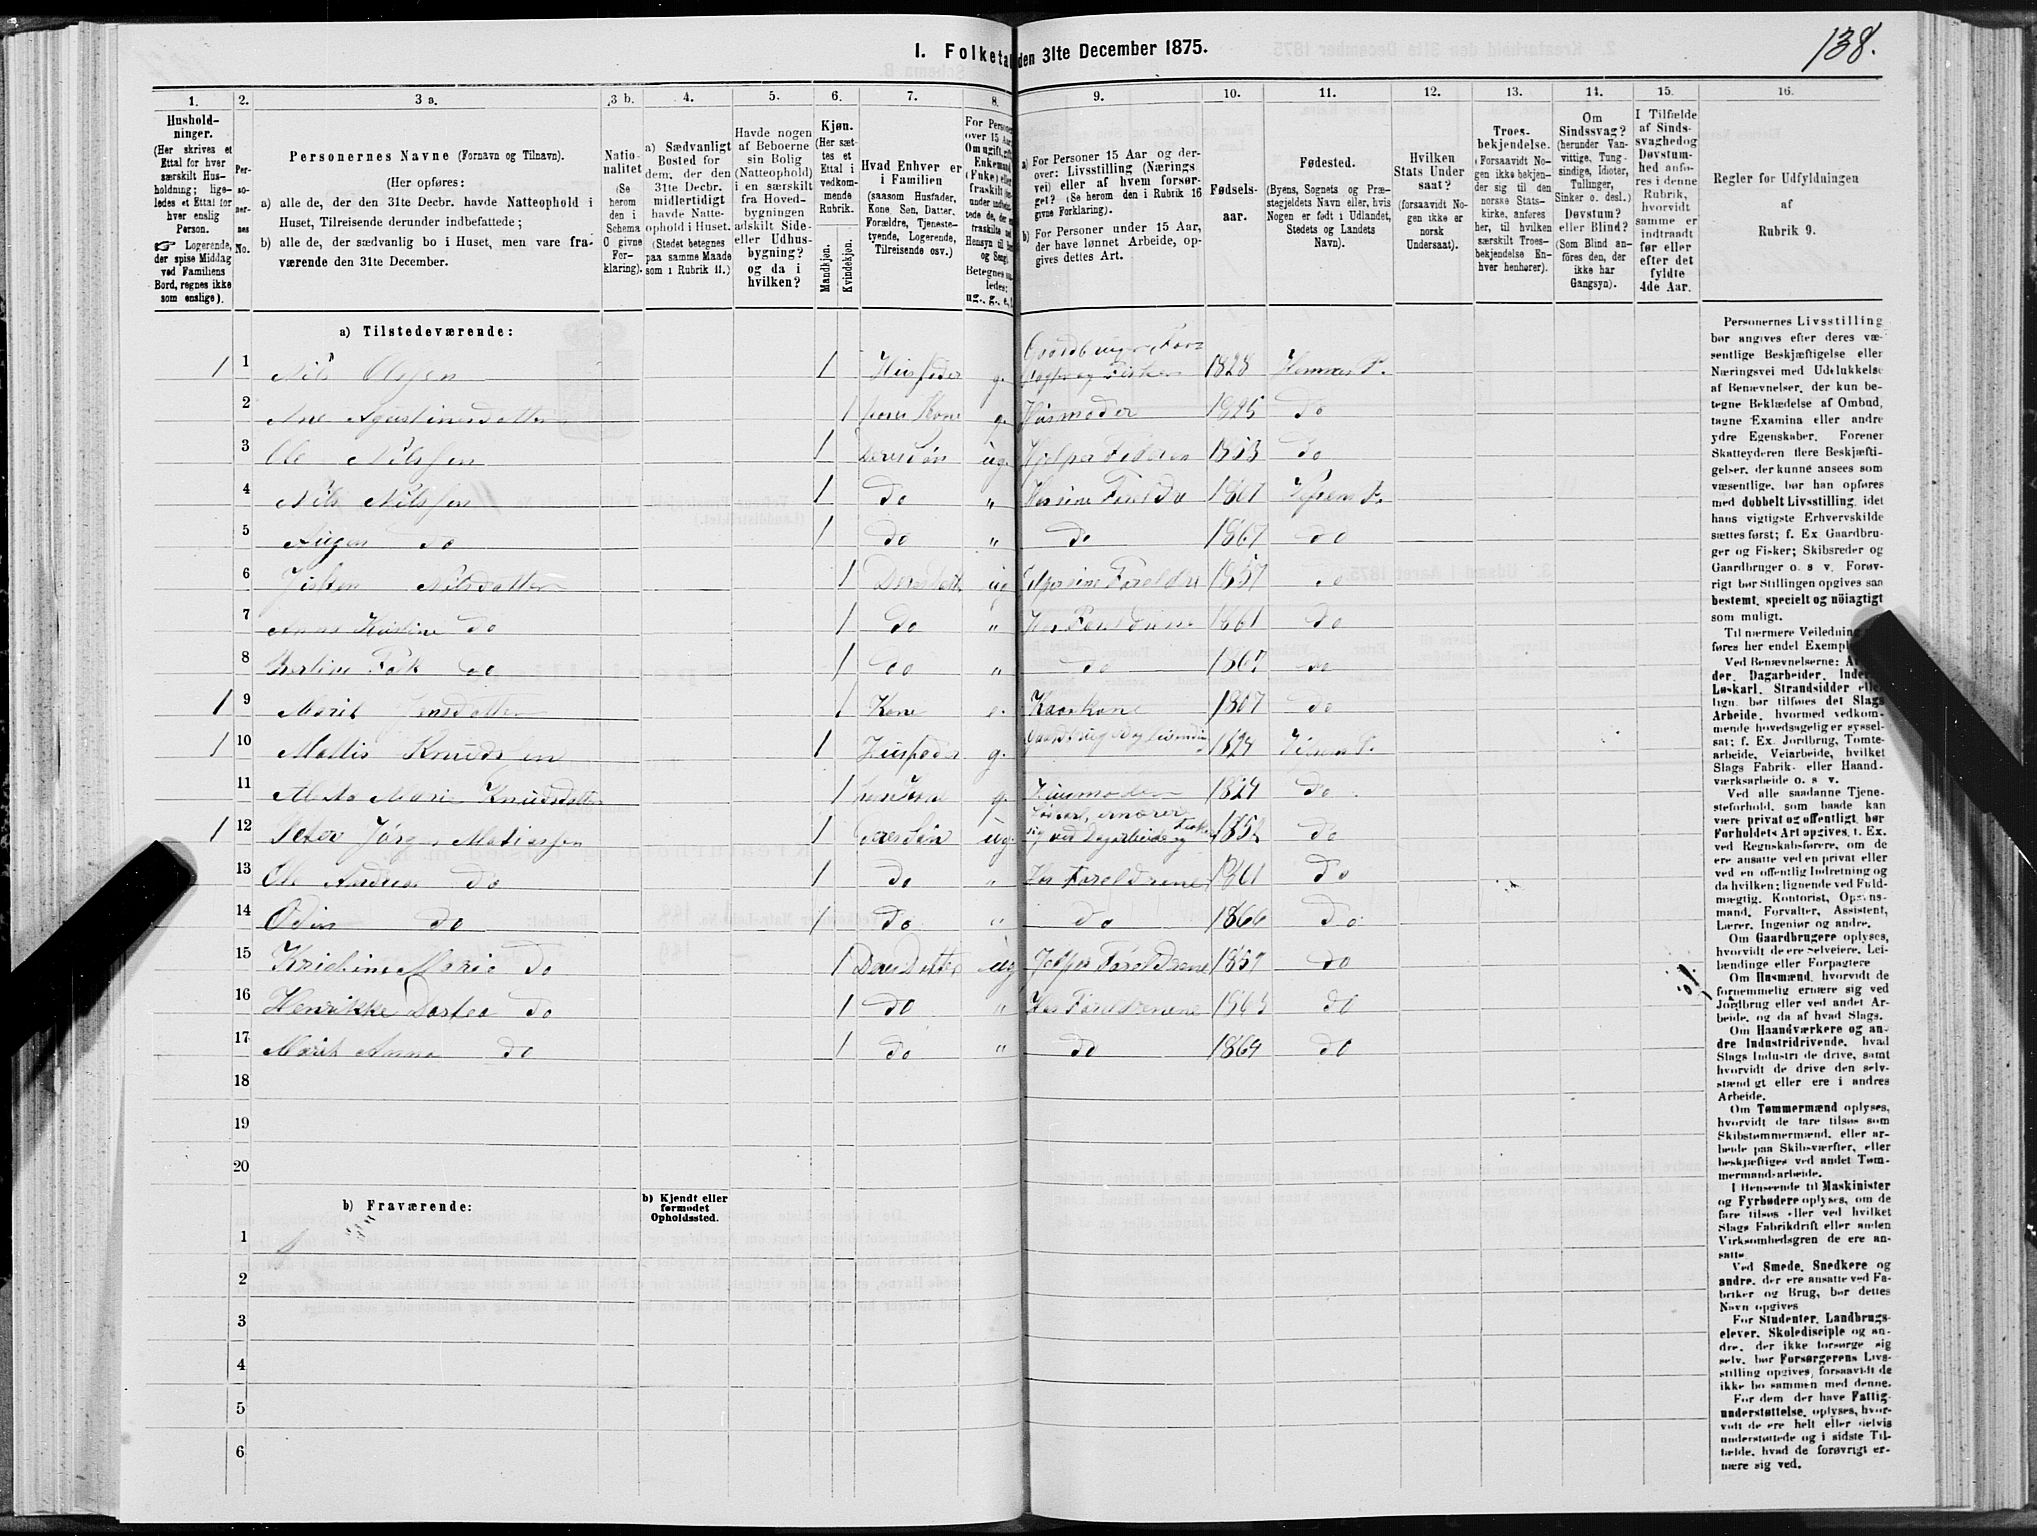 138.
I. Folketal den 31te December 1875.
1. 2. 3 a. 3 b. 4. 5. 6. 7. 8. 9. 10. 11. 12. 13. 14. 15. 16.
Hushold-
ninger.
(Her skrives et
Ettal for hver
særskilt Hus-
holdning; lige-
ledes et Ettal for
hver enslig
Person.
☞ Logerende,
der spise Middag
ved Familiens
Bord, regnes ikke
som enslige).
Per-
so-
ner-
nes
No.
Personernes Navne (Fornavn og Tilnavn).
(Her opføres:
a) alle de, der den 31te Decbr. havde Natteophold i
Huset, Tilreisende derunder indbefattede;
b) alle de, der sædvanlig bo i Huset, men vare fra-
værende den 31te December.
Natio-
nalitet
(Se
herom
den i
Schema
C givne
For-
klaring).
a) Sædvanligt
Bosted for
dem, der den
31te Decbr.
midlertidigt
havde Natte-
ophold i Huset.
(Stedet betegnes
paa samme Maade
som i Rubrik 11.)
Havde nogen
af Beboerne
sin Bolig
(Natteophold)
i en særskilt
fra Hoved-
bygningen
adskilt Side-
eller Udhus-
bygning?
og da i
hvilken?
Kjøn.
(Her sæt-
tes et
Ettal i
vedkom-
mende
Rubrik.
Mandkjøn.
Kvindekjøn.
Hvad Enhver er
i Familien
(saasom Husfader,
Kone, Søn, Datter,
Forældre, Tjeneste-
tyende, Logerende,
Tilreisende osv.)
For Persone
over 15 Aa
Om ugift, gift
Enkemand
(Enke) elle
fraskilt
Hensyn til
og Seng
Betegnes
ledes:
ug., g., e,
a) For Personer 15 Aar og der-
over: Livsstilling (Nærings
vei) eller af hvem forsør-
get? (Se herom den i Rubrik 16
givne Forklaring).
b) For Personer under 15 Aar,
der have lønnet Arbeide, op-
gives dettes Art.
Fødsels-
aar.
Fødested.
(Byens, Sognets og Præ-
stegjeldets Navn eller, hvis
Nogen er født i Udlandet,
Stedets og Landets
Navn).
Hvilken
Stats Under
saat?
(forsaavidt No-
gen ikke er
norsk
Undersaat).
Troes-
bekjendelse.
(Forsaavidt No-
gen ikke bekjen-
der sig til den
norske Stats-
kirke, anføres
her, til hvilken
særskilt Troes-
bekjendelse En-
hver henhører).
Om
Sindssvag?
(herunder Van-
vittige, Tung-
sindige, Idioter,
Tullinger,
Sinker o. desl.)
Døvstum?
eller Blind?
(Som Blind an-
føres den, der
ikke har
Gangsyn).
I Tilfælde
af Sinds-
svaghedog
Døvstum-
hed anfø-
res i denne
Rubrik,
hvorvidt
samme er
indtraadt
før eller
efter det
fyldte
4de Aar.
Regler for Udfyldningen
af
Rubrik 9.
a) Tilstedeværende:
1 1 Nils Olssen 1 Husfader g. 1828 Hemnes P.
2 Ane Agustinusdatter 1 hans Kone g. Husmoder 1825 do
3 Ole Nilssen 1 Deres Søn ug. Hjelper Faderen 1853 do
4 Nils Nilssen 1 do „ 1861
5 do 1 do „ do 1867 do
6 Nilsdatter 1 ug 1857 do
7 Anne Kristine do 1 do „ 1861 do
8 do 1 do „ do 1867 do
1 9 Marit Jensdatter 1 Kone e. Kaarkone 1807 do
1 10 Mattis Knudssen 1 Husfader g. 1824
11 Marie Knudsdatter 1 hans Kone g. Husmoder 1829 do
1 12 Peter Jørg. Matissen 1 deres Søn ug. ved Dagarbeide og 1852 do
13 Ole Andreas do 1 do „ Hos Foreldrene 1861 do
14 Odin do 1 do „ do 1866 do
15 Kristine Marie do 1 Deres Datter ug Hjelper Foreldrene 1857 do
16 Henrikke Dortea do 1 do „ Hos Foreldrenene 1863 do
17 Marit Anna do 1 do „ do 1869 do
18
19
20
b) Fraværende:
b) Kjendt eller
formodet
Opholdssted.
1
2
3
4
5
6
Personernes Livsstilling
bør angives efter deres væ-
sentlige Beskjæftigelse eller
Næringsvei med Udelukkelse
af Benævnelser, der kun be-
tegne Beklædelse af Ombud,
tagne Examina eller andre
ydre Egenskaber. Forener
Skatteyderen flere Beskjæfti-
gelser, der kunne ansees som
væsentlige, bør han opføres
med dobbelt Livsstilling, idet
hans vigtigste Erhvervskilde
sættes først; f. Ex Gaardbru-
ger og Fisker; Skibsreder og
Gaardbruger o. s. v. Forøv-
rigt bør Stillingen opgives saa
bestemt, specielt og nöiagtigt
som muligt.
Til nærmere Veiledning
føres her endel Exempl
Ved Benævnelserne: A
der, Dagarbeider, Inder
Løskarl, Strandsidder elle
lign. bør tilføies det Slags
Arbeide, hvormed vedkom-
mende hovedsagelig er syssel-
sat; f. Ex. Jordbrug, Tomte-
arbeide, Veiarbeide, hvilket
Slags Fabrik- eller Haand-
værksarbeide o. s v.
Ved alle saadanne Tjene-
steforhold, som baade kan
være privat og offentligt, bør
Forholdets Art opgives, t. Ex.
ved Regnskabsførere, om de
ere ansatte ved en privat eller
ved en offentlig Indretning og
da hvilken; lignende ved Fuld-
mægtig, Kontorist, Opsyns-
mand, Forvalter, Assistent,
Lærer, Ingeniør og andre.
Om Gaardbrugere oplyses,
hvorvidt de ere Selveiere, Lei-
lændinge eller Forpagtere
Om Husmænd, hvorvidt de
fornemmelig ernære sig ved
Jordbrug eller ved andet Ar-
beide, og da af hvad Slags.
Om Haandværkere og an-
dre Industridrivende, hvad
Slags Industri de drive, samt
hvorvidt de drive den selv-
stændigt eller ere i andres
Arbeide.
Om Tømmermænd oplyses,
hvorvidt de fare tilsøs som
Skibstømmermænd, eller ar-
beide paa Skibsværfter, eller
beskjæftiges ved andet Tøm-
mermand-arbeide.
I Henseende til Maskinister
og Fyrbødere oplyses, om de
fare tilsøs eller ved hvilket
Slags Fabrikdrift eller anden
Virksomhedsgren de ere an-
satte.
Ved Smede, Snedkere og
andre, der ere ansatte ved Fa-
briker og Brug, bør dettes
Navn opgives
For Studenter, Landbrugs-
elever, Skoledisciple og an-
dre, der ikke forsørge sig
selv, bør Forsørgerens Livs-
stilling opgives, forsaavidt de
ikke bo sammen med denne.
For dem, der have Fattig-
understøttelse, oplyses, hvor-
vidt de ere helt eller delvis
understøttede og i sidste Til-
fælde, hvad de forøvrigt er-
nære sig ved.